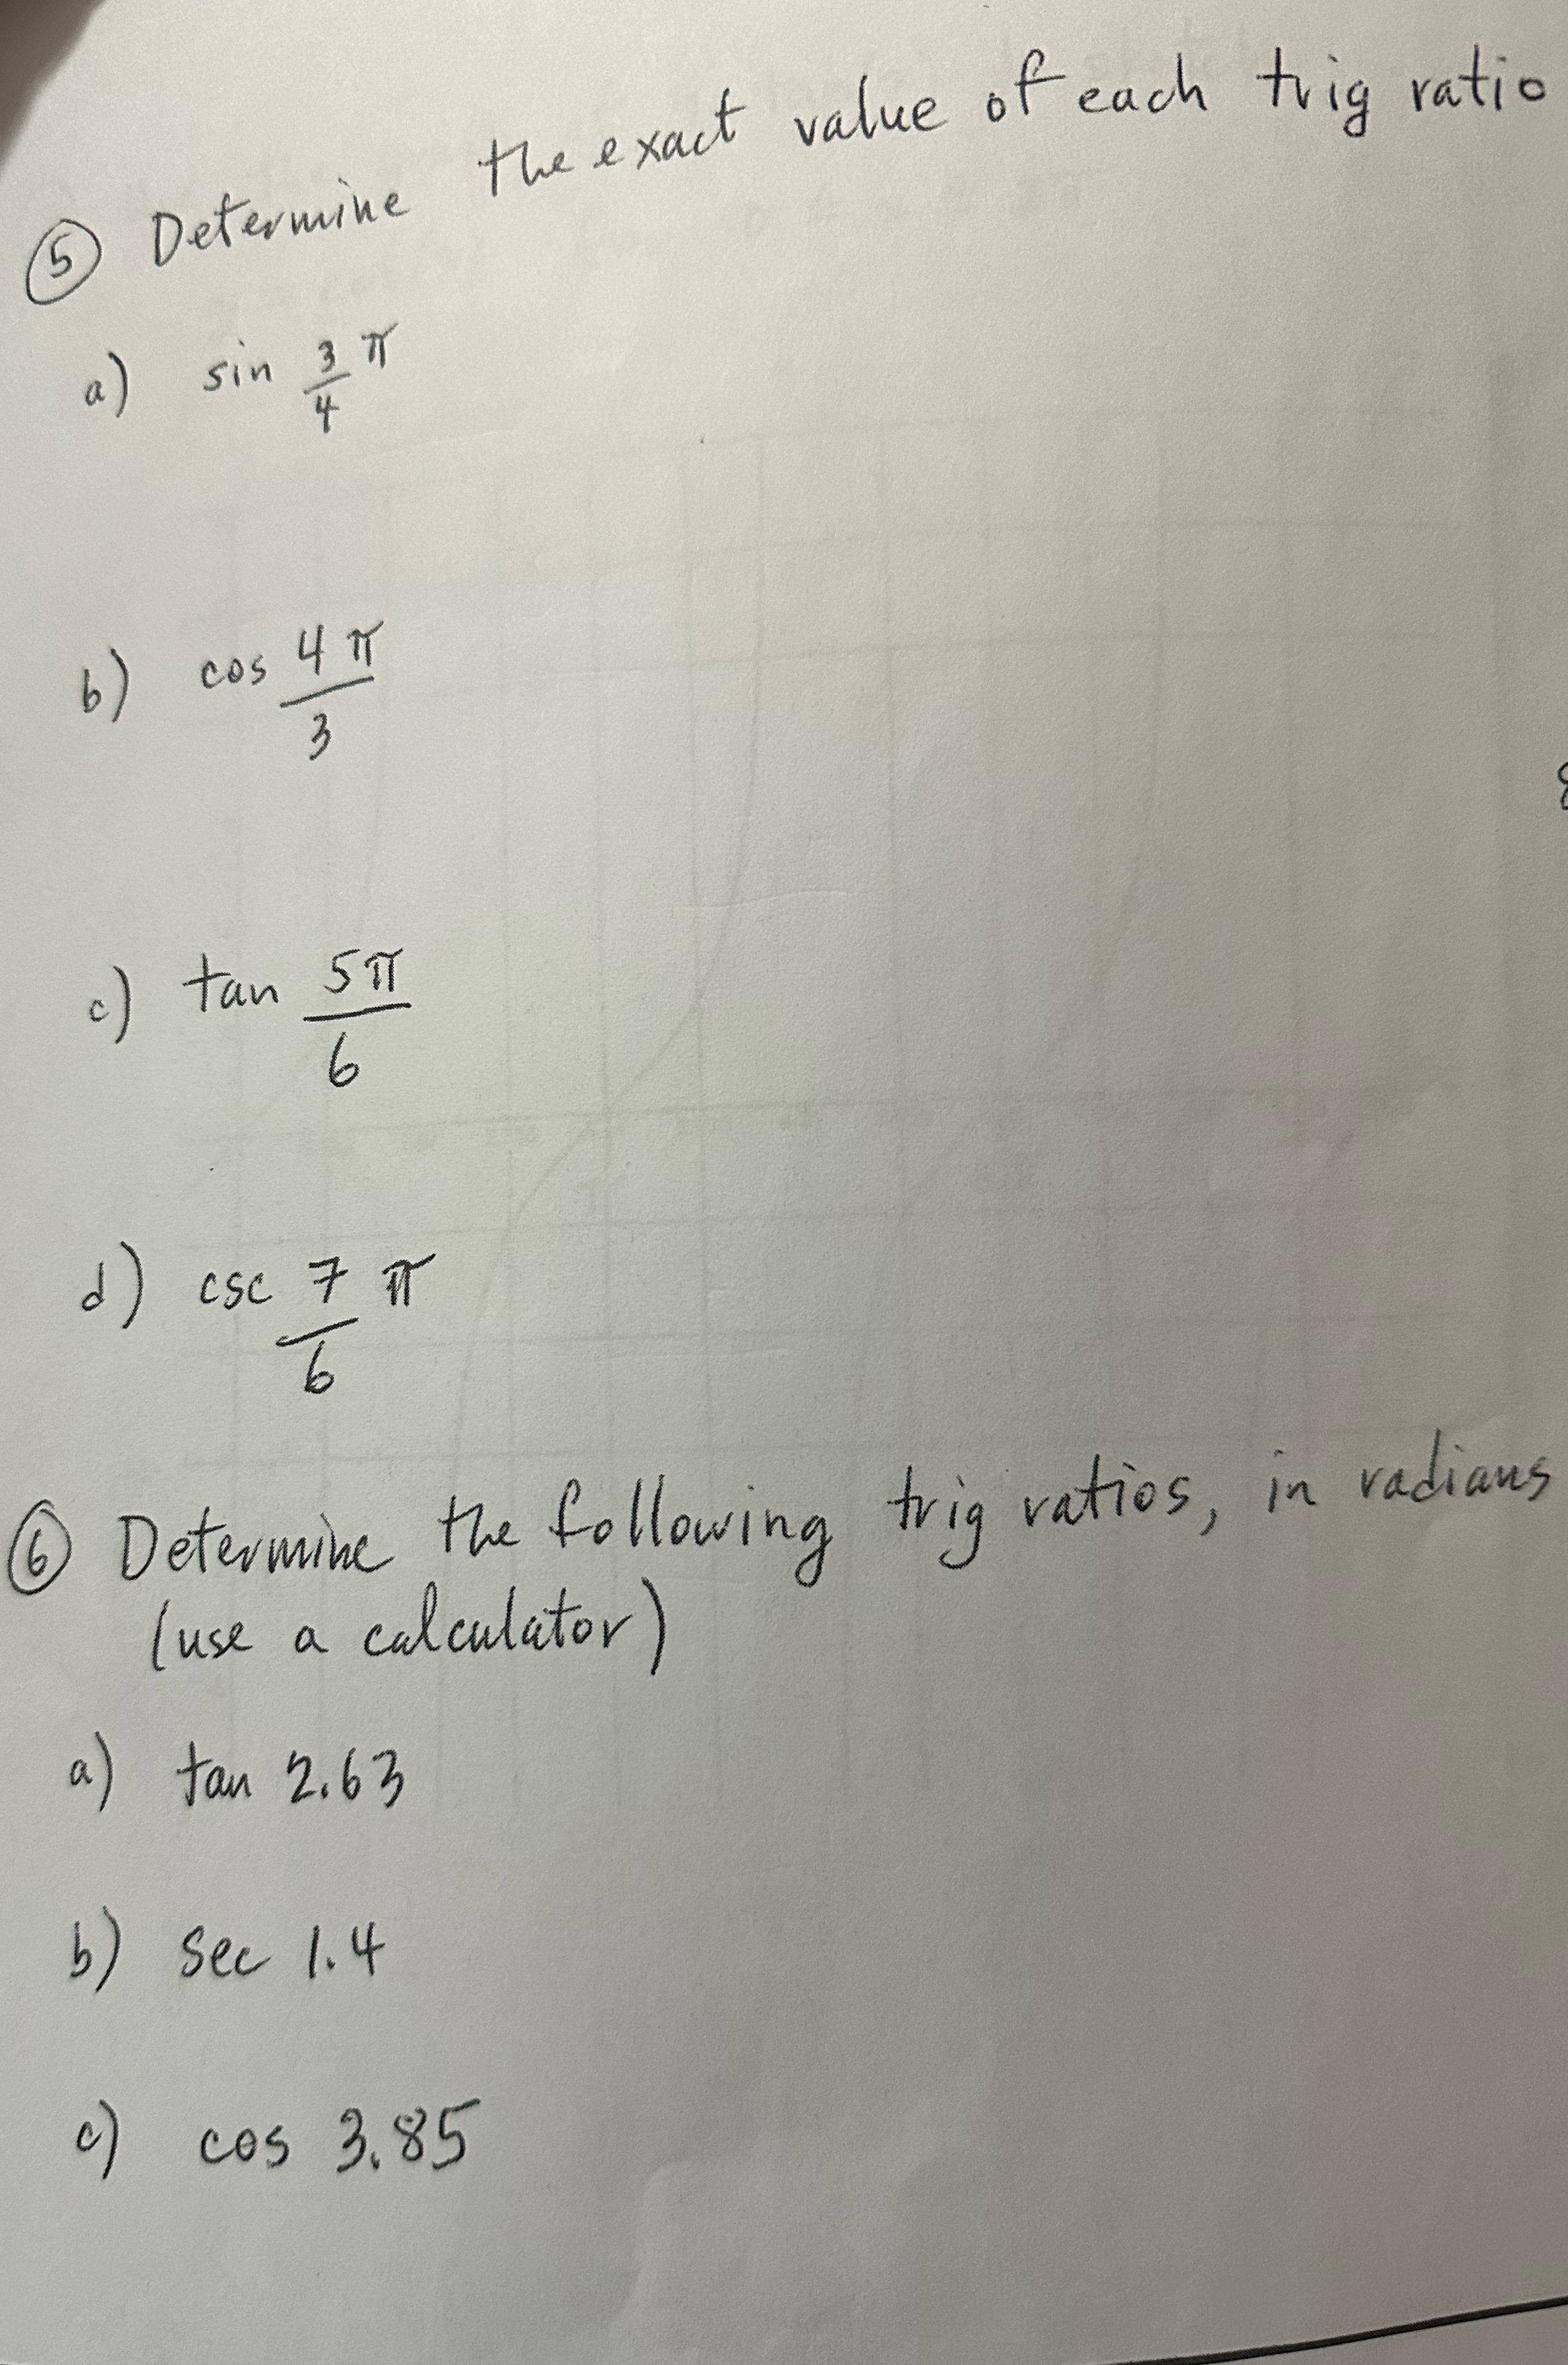 ⑤ Determine the exact value of each trig ratio
a) sin 3/4 π
b) cos 4π/3
c) tan 5π/6
d) csc 7/6 π
⑥ Determine the following trig ratios, in radians
(use a calculator)
a) tan 2.63
b) sec 1.4
c) cos 3.85